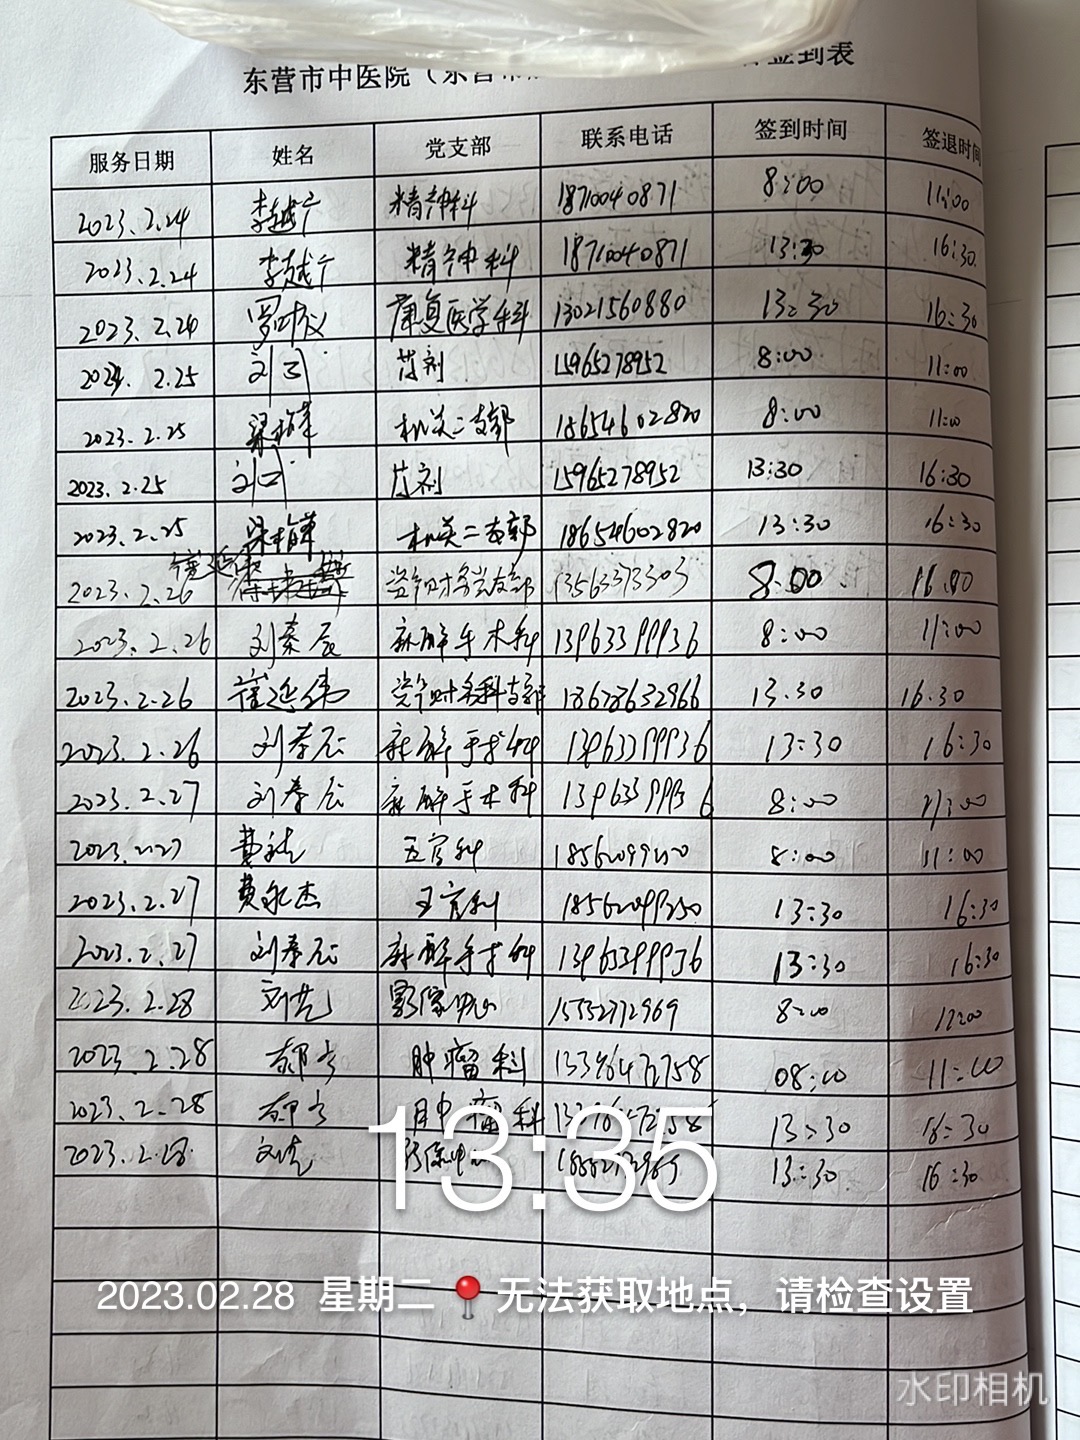 东营市中医院（东营市 签到表
服务日期 姓名 党支部 联系电话 签到时间 签退时间
2023.2.24 李越宁 精神科 18710040871 8:00 11:00
2023.2.24 李越宁 精神科 18710040871 13:30 16:30
2023.2.24 康复医学科 13021560880 13:30 16:30
2.25 药剂 15965278952 8:00 11:00
2023.2.25 机关二支部 18654602820 8:00 11:00
2023.2.25 药剂 15965278952 13:30 16:30
2023.2.25 机关二支部 18654602820 13:30 16:30
2023.2.26 崔延伟 13563373303 8:00
2023.2.26 刘泰辰 麻醉手术科 13963399936 8:00 11:00
2023.2.26 崔延伟 18678632966 13.30 16.30
2023.2.26 刘泰辰 麻醉手术科 13963399936 13:30 16:30
2023.2.27 刘泰辰 麻醉手术科 13963399936 8:00 11:00
2023.2.27 五官科 8:00 11:00
2023.2.27 费永杰 五官科 13:30 16:30
2023.2.27 刘泰辰 麻醉手术科 13963399936 13:30 16:30
2023.2.28 影像中心 15552772969 8:00 11:00
2023.2.28 肿瘤科 08:00 11:00
2023.2.28 肿瘤科 13:30 16:30
2023.2.28 13:30 16:30
13:35
2023.02.28 星期二 无法获取地点，请检查设置
水印相机